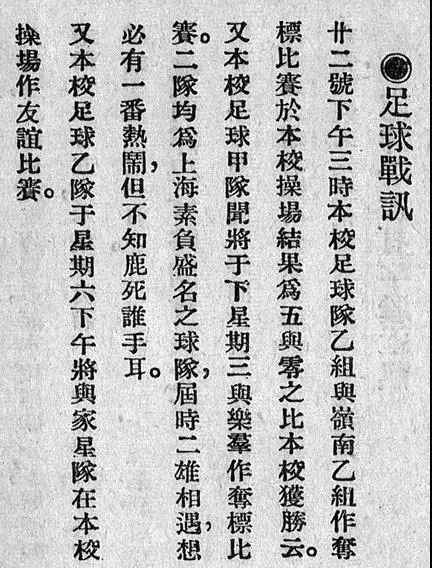 ●足球戰訊
廿二號下午三時本校足球隊乙組與嶺南乙組作奪
標比賽於本校操場結果爲五與零之比本校獲勝云。
又本校足球甲隊聞將于下星期三與樂羣作奪標比
賽。二隊均爲上海素負盛名之球隊，屆時二雄相遇，想
必有一番熱鬧，但不知鹿死誰手耳。
又本校足球乙隊于星期六下午將與家星隊在本校
操場作友誼比賽。